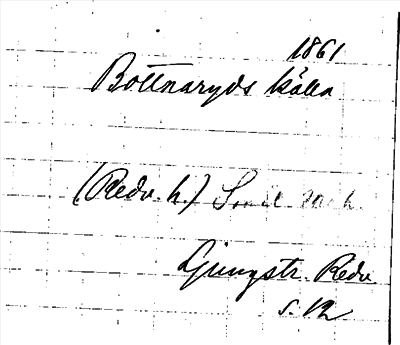 1861
Bottnaryds källa
(Redv. h.)
Ljungstr. Redv
s. 12